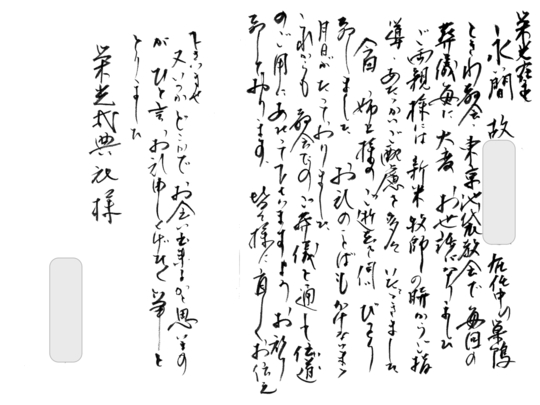 栄光
永間 故 在住中の巣鴨
ときわ教会、東京池袋教会で毎回の
葬儀毎に大変お世話になりました
ご両親様には新米牧師の時からご指
導、あたたかいご配慮を多々いただきました
今回、姉上様のご逝去を伺いびっくり
致しました お礼のことばもかけないまゝ
月日がたっておりました
これからも教会でのご葬儀を通して伝道
のご用にあたって下さいますよう お祈り
致しております。皆々様に宜しくお伝え
下さいませ
又いつかどこかでお会い出来るかと思いますの
がひと言、お礼申し上げたく筆をと
りました
栄光式典社様